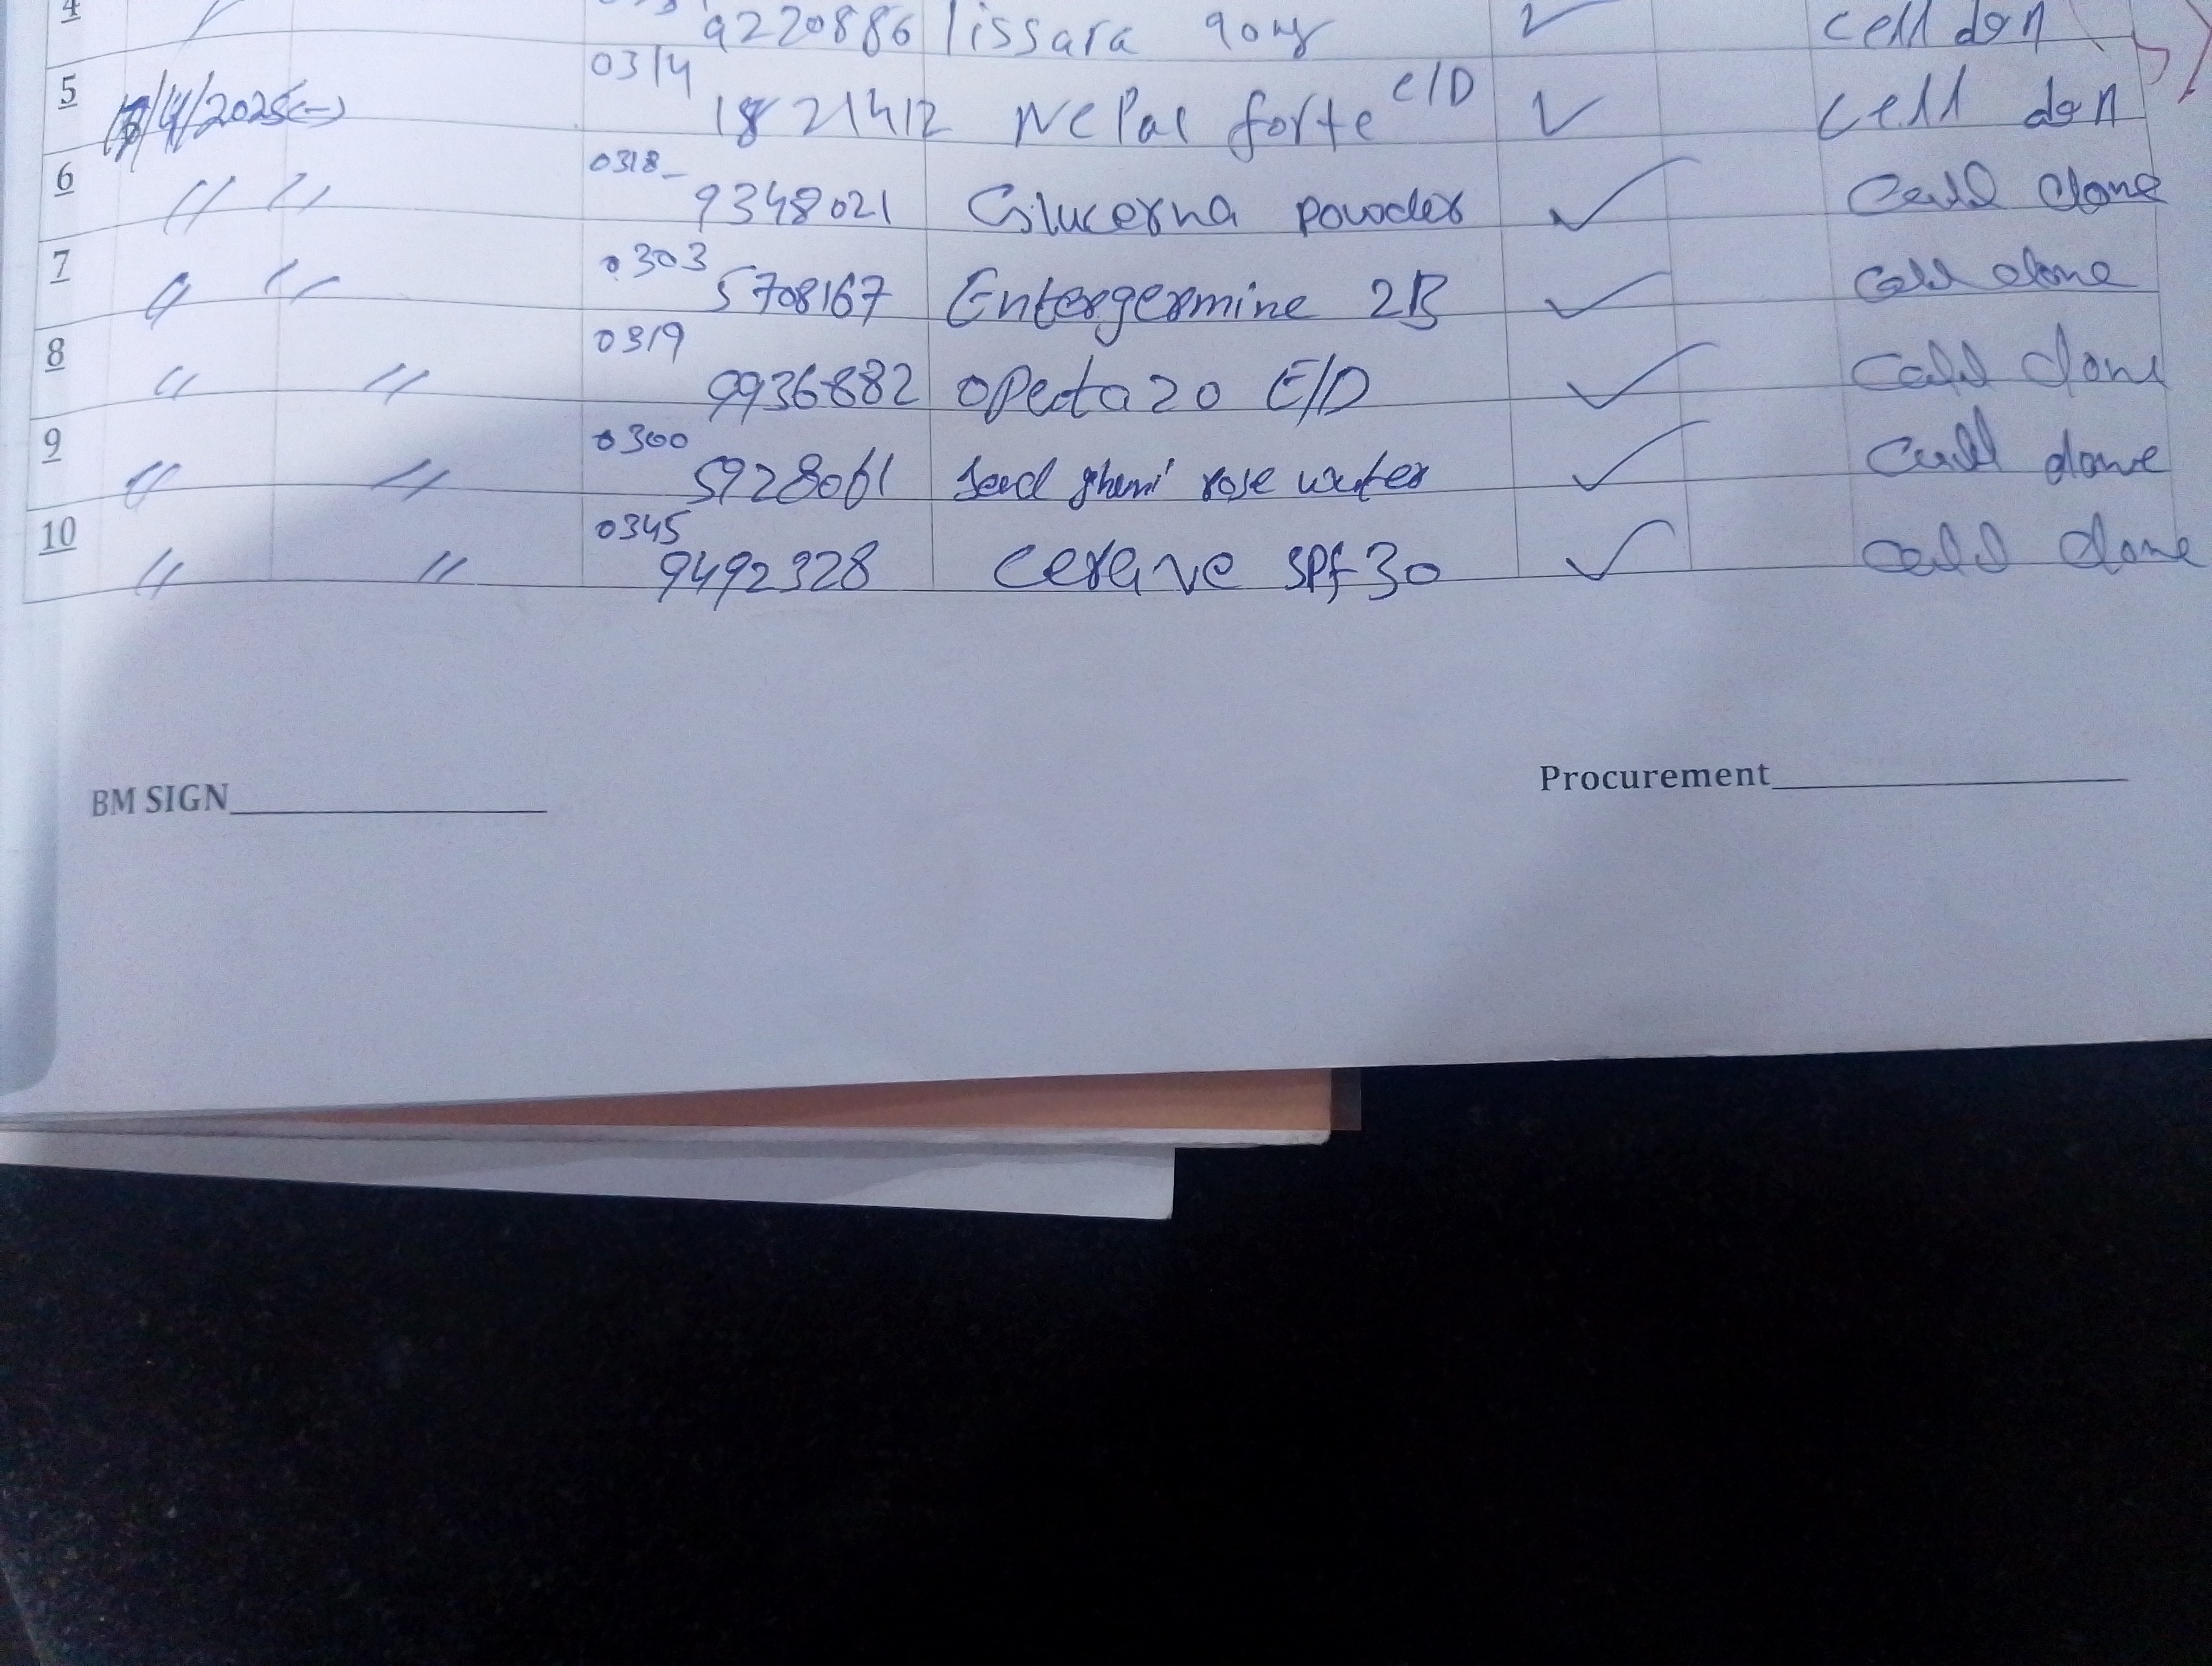 4 9220886 lissara 90mg ✓ cell don
5 /4/2025 0314 1821412 Nepal forte e/D ✓ cell don
6 〃 〃 0318_ 9348021 Glucerna powder ✓ Call done
7 〃 〃 0303 5708167 Entergermine 2B ✓ Call done
8 〃 〃 0319 9936882 opecta 20 E/D ✓ Call done
9 〃 〃 0300 5928061 rose water ✓ Call done
10 〃 〃 0345 9492328 cerave SPF 30 ✓ Call done
BM SIGN Procurement